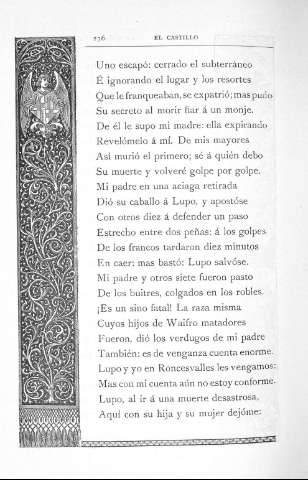 236
EL CASTILLO
Uno escapó: cerrado el subterráneo
É ignorando el lugar y los resortes
Que le franqueaban, se expatrió; mas pudo
Su secreto al morir fiar á un monje.
De él le supo mi madre: ella expirando
Revelómelo á mí. De mis mayores
Así murió el primero; sé á quién debo
Su muerte y volveré golpe por golpe.
Mi padre en una aciaga retirada
Dió su caballo á Lupo, y apostóse
Con otros diez á defender un paso
Estrecho entre dos peñas: á los golpes
De los francos tardaron diez minutos
En caer: mas bastó: Lupo salvóse.
Mi padre y otros siete fueron pasto
De los buitres, colgados en los robles.
¡Es un sino fatal! La raza misma
Cuyos hijos de Waifro matadores
Fueron, dió los verdugos de mi padre
También: es de venganza cuenta enorme.
Lupo y yo en Roncesvalles les vengamos:
Mas con mi cuenta aún no estoy conforme.
Lupo, al ir á una muerte desastrosa,
Aquí con su hija y su mujer dejóme: